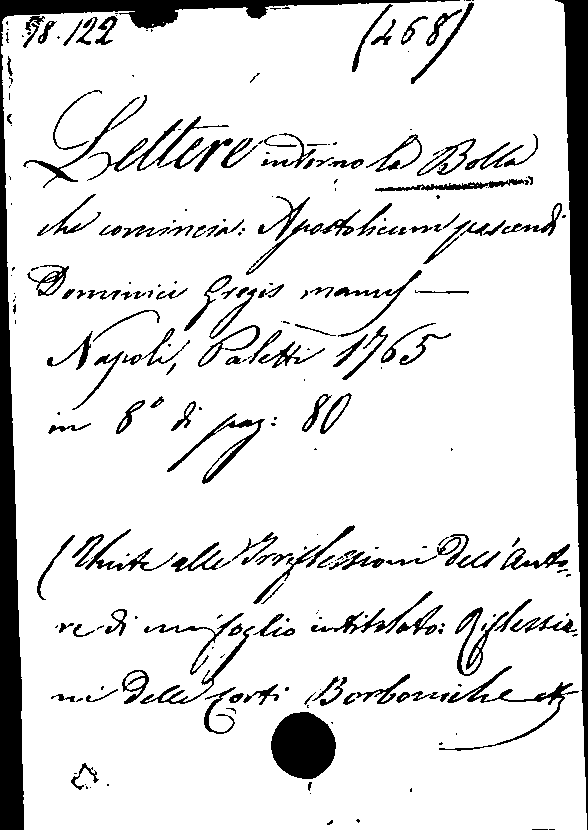 98.122 (468)
Lettere intorno la Bolla
che comincia: Apostolicum pascendi
Dominici Gregis munus —
Napoli, Paletti 1765
in 8° di pag: 80
(Unite alle Irriflessioni dell'Auto-
re di un foglio intitolato: Riflessio-
ni delle Corti Borboniche etc